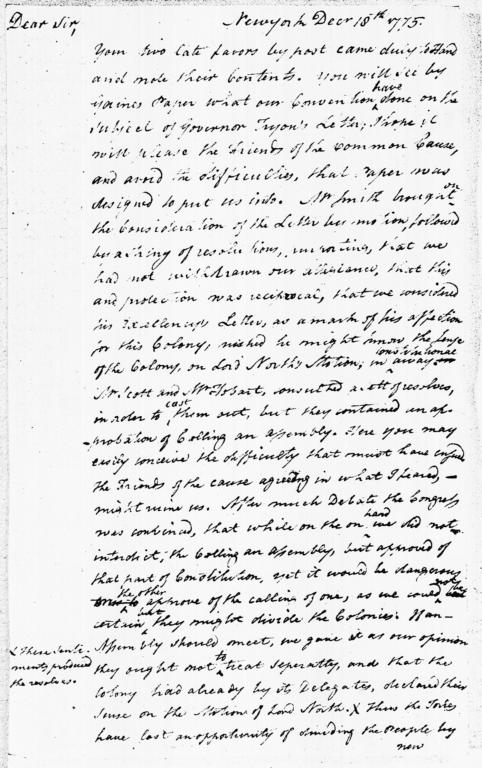 Dear Sir,
Newyork Decr 18th 1775.
Your two late favors by post came duly to hand
and note their Contents. You will see by
Gaines Paper what our Convention have done on the
subject of Governor Tryon's Letter, I hope it
will please the Friends of the Common Cause,
and avoid the difficulties, that Paper was
designed to put us into. Mr Smith brought on
the Consideration of the Letter by motion, followed
by a string of resolutions, importing, that we
had not withdrawn our allegiance, that this
and protection was reciprocal, that we considered
his Excellencys Letter, as a mark of his affection
for this Colony, wished he might know the sense
of the Colony, on Lord North's Motion, in constitutional away
Mr Scott and Mr Hobart, consulted a sett of resolves,
in order to cast them out, but they contained an ap-
probation of Calling an Assembly. Here you may
easily conceive the difficulty that must have ensued
the Friends of the cause agreeing in what I feared,
might ruine us. After much Debate the Congress
was convinced, that while on the on hand we did not
interdict, the Calling an Assembly, but approved of
that part of Constitution, yet it would be dangerous
on the other to approve of the calling of one, as we could not be
certain but they might divide the Colonies. If an
Assembly should meet, we gave it as our opinion
they ought not to treat seperatly, and that the
Colony had already by its Delegates, declared their
sense on the Motion of Lord North. X thus the Tories
have lost an opportunity of dividing the People by
now
X these senti-
ments produced
the resolves.